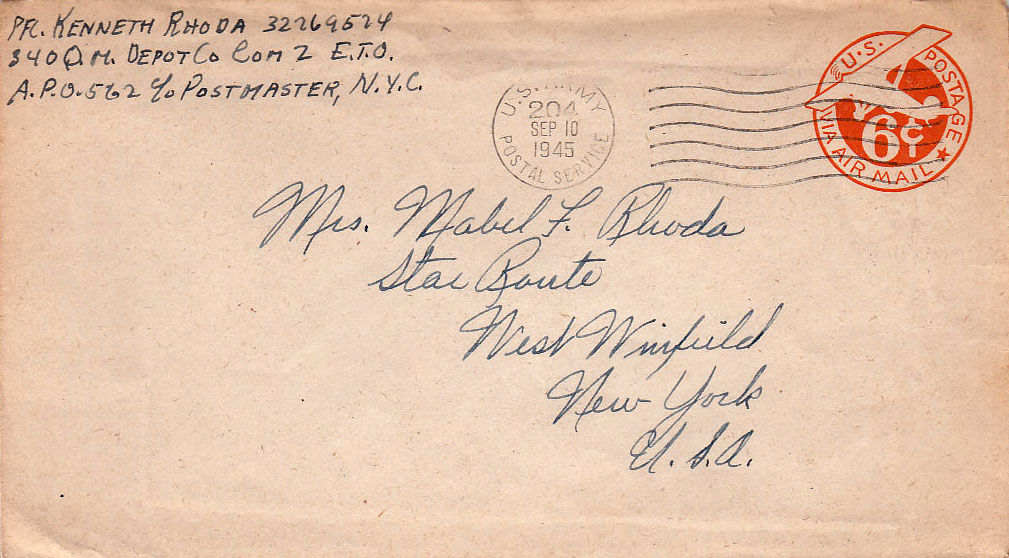 PFC. KENNETH RHODA 32269524
340 Q.M. DEPOT CO COM 2 E.T.O.
A.P.O. 562 c/o POSTMASTER, N.Y.C.
U.S. ARMY
204
SEP 10
1945
POSTAL SERVICE
U.S. POSTAGE
6¢
VIA AIR MAIL
Mrs. Mabel F. Rhoda
Star Route
West Winfield
New York
U.S.A.